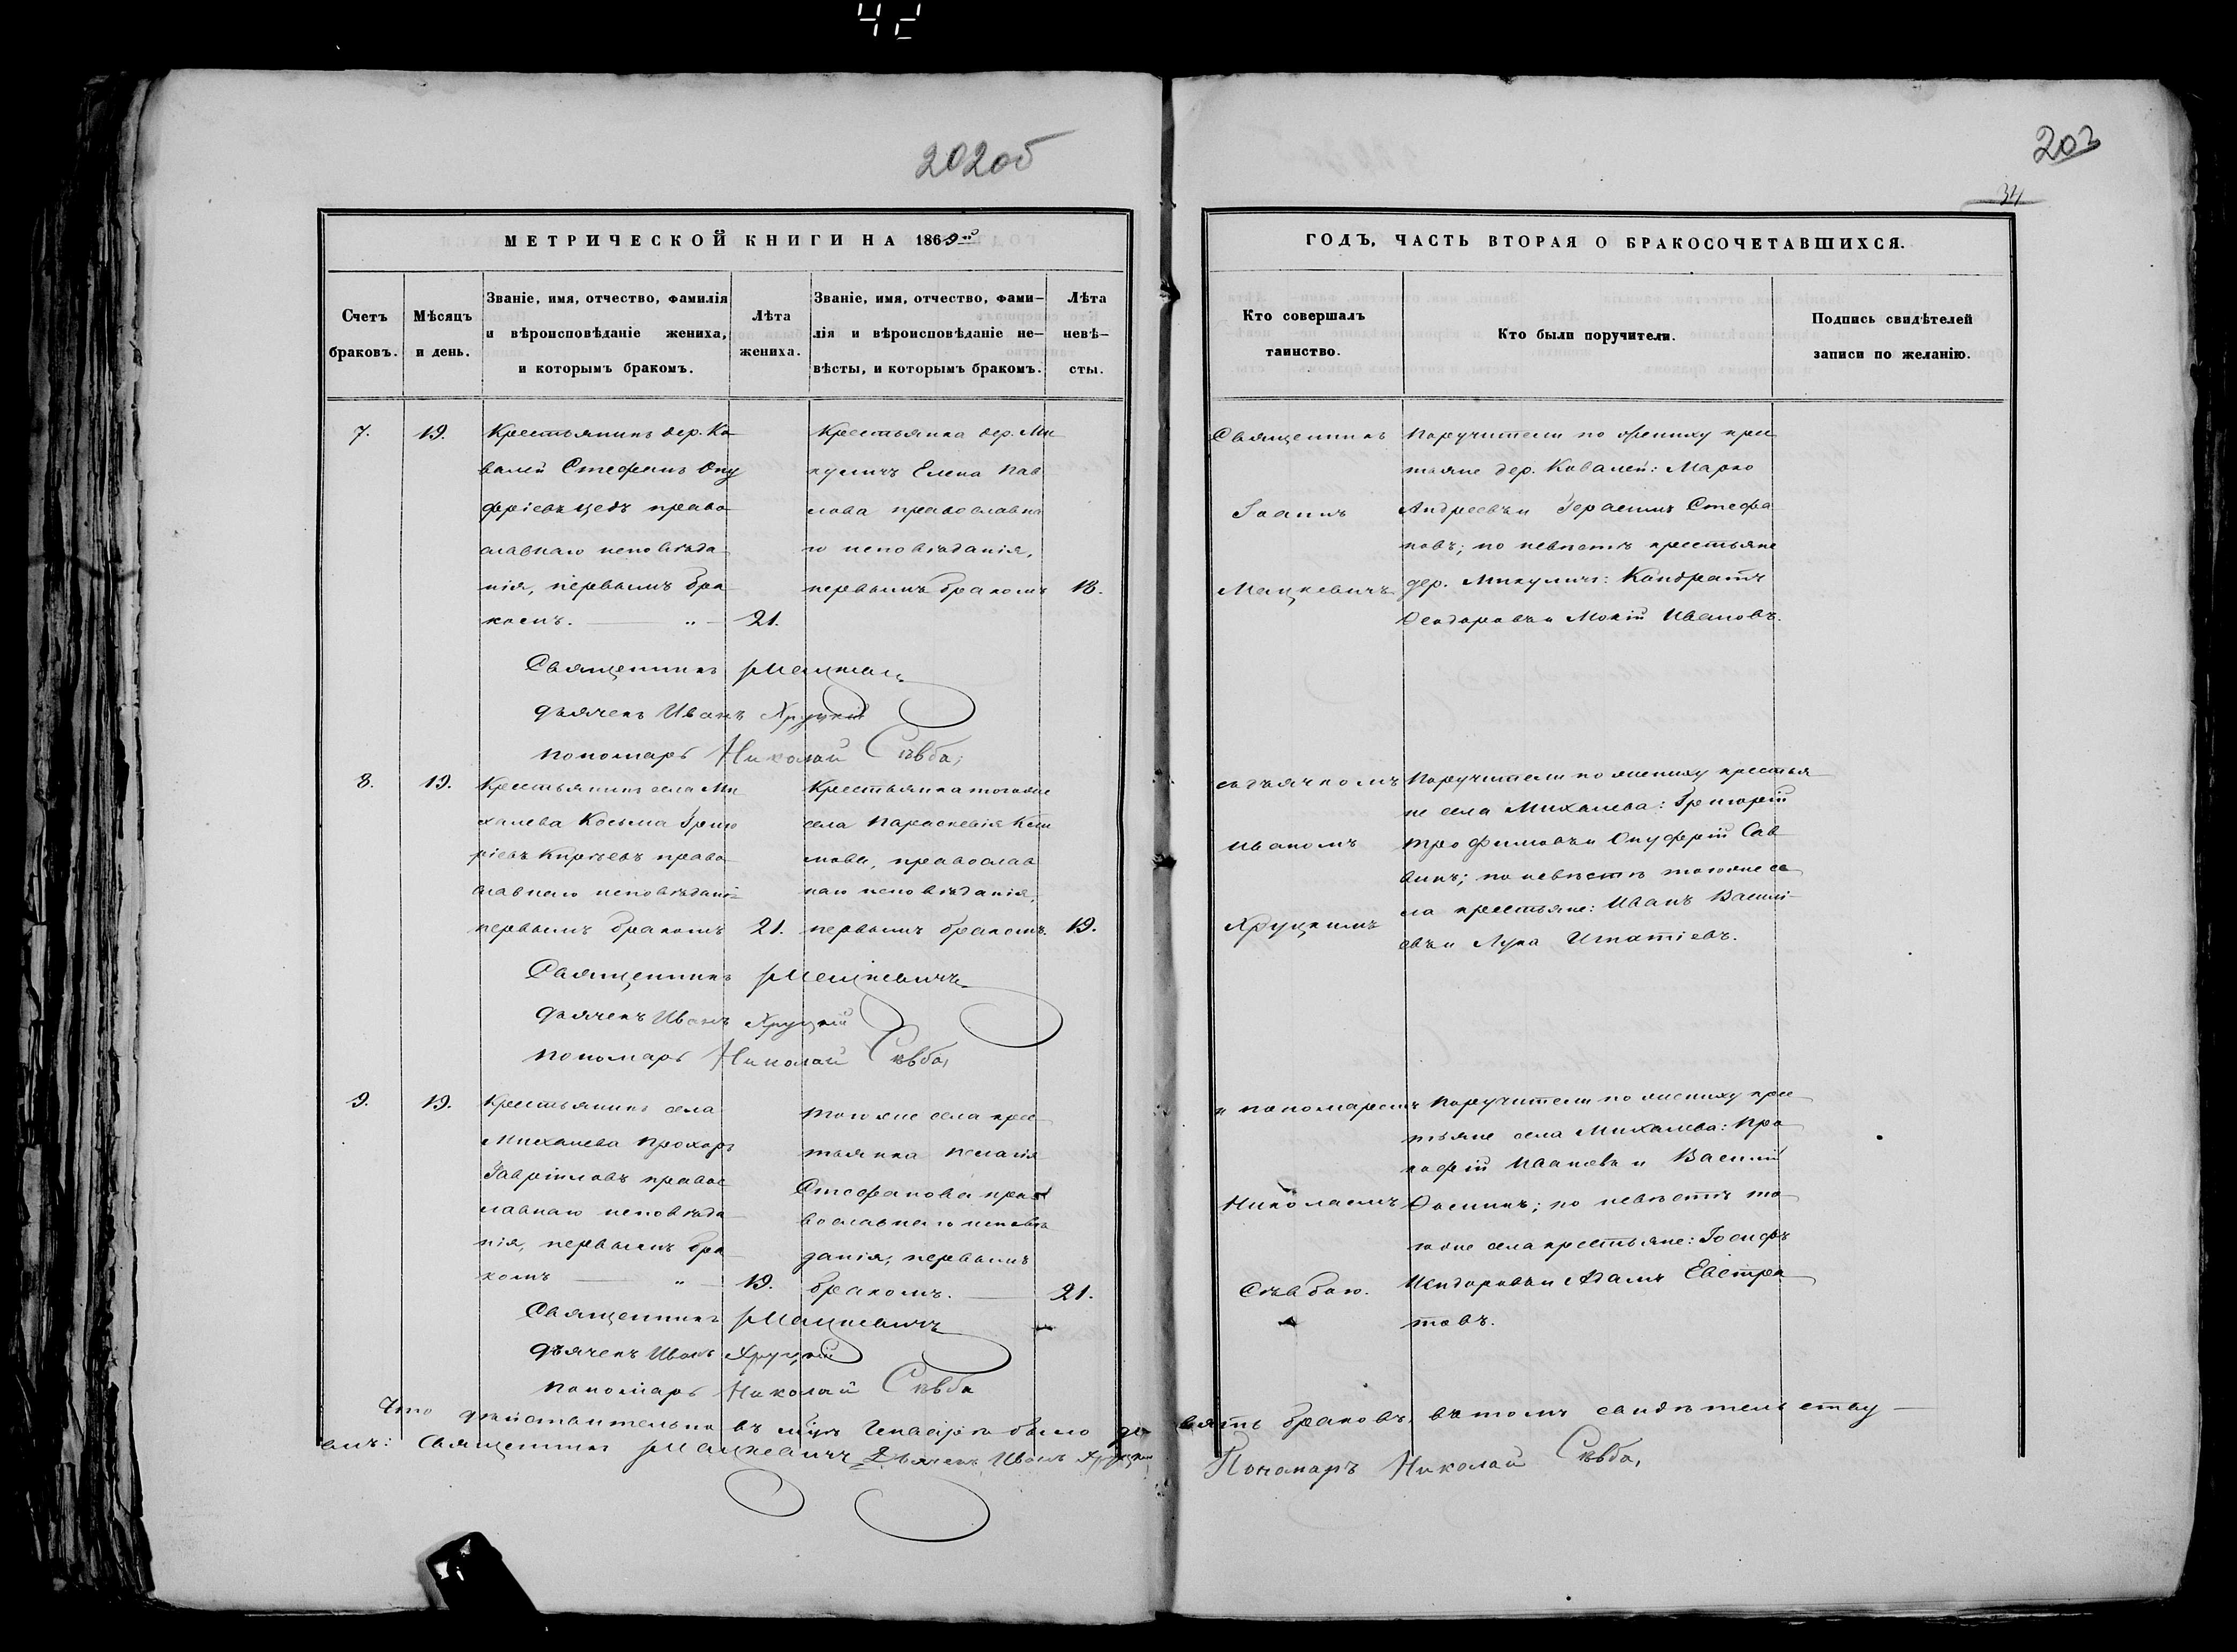 42
202об
203
34
МЕТРИЧЕСКОЙ КНИГИ НА 1869ый
ГОДЪ, ЧАСТЬ ВТОРАЯ О БРАКОСОЧЕТАВШИХСЯ.
Счетъ
браковъ.
Мѣсяцъ
и день.
Званіе, имя, отчество, фамилія
и вѣроисповѣданіе жениха,
и которымъ бракомъ.
Лѣта
жениха.
Званіе, имя, отчество, фами-
лія и вѣроисповѣданіе не-
вѣсты, и которымъ бракомъ.
Лѣта
невѣ-
сты.
Кто совершалъ
таинство.
Кто были поручители.
Подпись свидѣтелей
записи по желанію.
7.
19.
Крестьянинъ дер. Ко
валей Стефанъ Ону
фріевъ право
славнаго исповѣда
нія, первымъ бра
комъ. 21.
Крестьянка дер. Ми
куличъ Елена Пав
лова православна
го исповѣданія,
первымъ бракомъ 18.
Священникъ
Іоаннъ
Мацкевичъ
Поручители по жениху крес
тьяне дер. Ковалей: Марко
Андреевъ и Герасимъ Стефа
новъ; по невѣстѣ крестьяне
дер. Микуличъ: Кондратъ
Ѳеодоровъ и Мокій Ивановъ.
Священникъ Мацкевичъ
дьячекъ Иванъ Хруцкій
пономарь Николай Сѣвба,
8.
19.
Крестьянинъ села Ми
халева Косьма Григо
ріевъ православнаго исповѣдані
первымъ бракомъ 21.
Крестьянка тогоже
села Параскевія
православ
наго исповѣданія,
первымъ бракомъ. 19.
съ дьячкомъ
Иваномъ
Хруцкимъ
Поручители по жениху крестья
не села Михалева: Григорій
Трофимовъ и Онуфрій Сав
винъ; по невѣстѣ тогоже се
ла крестьяне: Иванъ Васили
евъ и Лука Игнатіевъ.
Священникъ Мацкевичъ
дьячекъ Иванъ Хруцкій
пономарь Николай Сѣвба,
9.
19.
Крестьянинъ села
Михалева Прохоръ
Гавріиловъ правос
лавнаго исповѣда
нія, первымъ бра
комъ 19.
тогоже села крес
тьянка Пелагія
Стефанова пра
вославнаго исповѣ
данія, первымъ
бракомъ. 21.
и пономаремъ
Николаемъ
Сѣвбою.
Поручители по жениху крес
тьяне села Михалева: Про
кофій Ивановъ и Василій
Ѳоминъ; по невѣстѣ то
гоже села крестьяне: Іосифъ
Исидоровъ и Адамъ Евстра
товъ.
Священникъ Мацкевичъ
дьячекъ Иванъ Хруцкій
пономарь Николай Сѣвба
Что дѣйствительно въ мцѣ Генварѣ было де вять браковъ, въ томъ свидѣтельству
емъ: Священникъ Мацкевичъ Дьячекъ Иванъ Хруцкій Пономарь Николай Сѣвба,